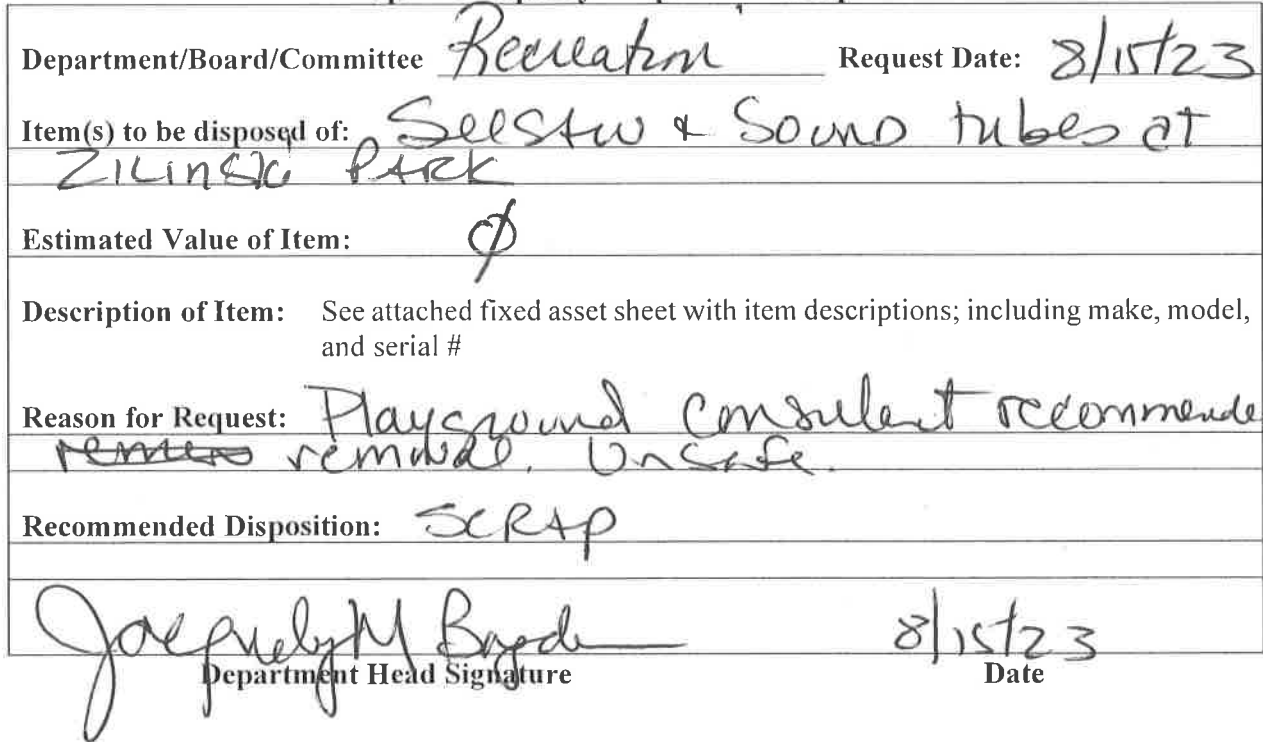 Department/Board/Committee Recreation Request Date: 8/15/23
Item(s) to be disposed of: SeeSaw & Sound tubes at
Zilinski PARK
Estimated Value of Item: Ø
Description of Item: See attached fixed asset sheet with item descriptions; including make, model,
and serial #
Reason for Request: Playground Consultant recommende
removal. Unsafe.
Recommended Disposition: SCRAP
Jacquelyn M
8/15/23
Department Head Signature Date